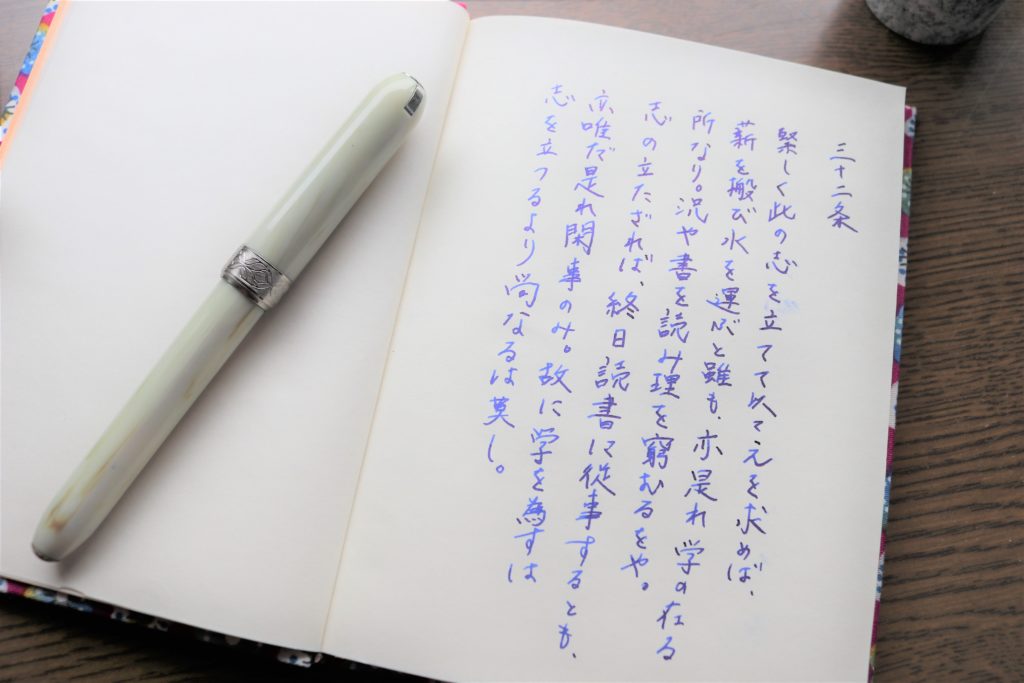 三十二条
緊しく此の志を立てて以て之を求めば、
薪を搬び水を運ぶと雖も、亦是れ学の在る
所なり。況や書を読み理を窮むるをや。
志の立たざれば、終日読書に従事するとも、
亦唯だ是れ閑事のみ。故に学を為すは
志を立つるより尚なるは莫し。